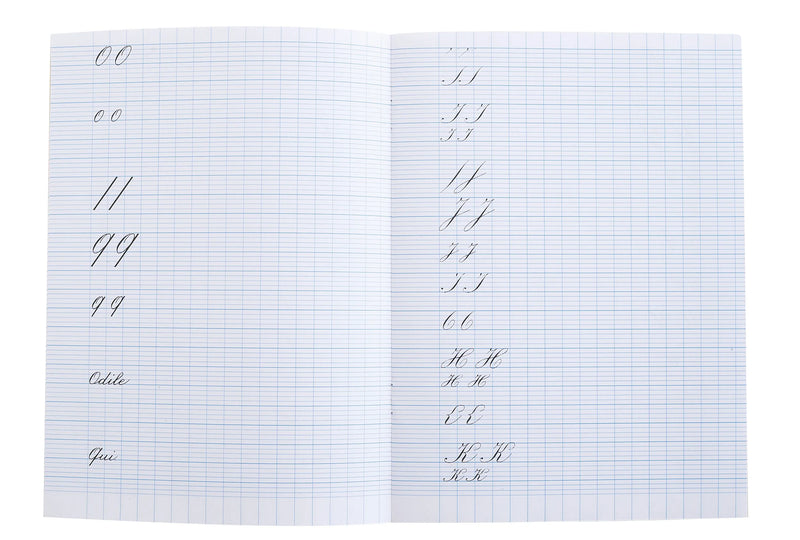 O O
O O
q q
q q
Odile
Qui
I I
I I
J J
J J
I I
H H
H H
L L
K K
K K